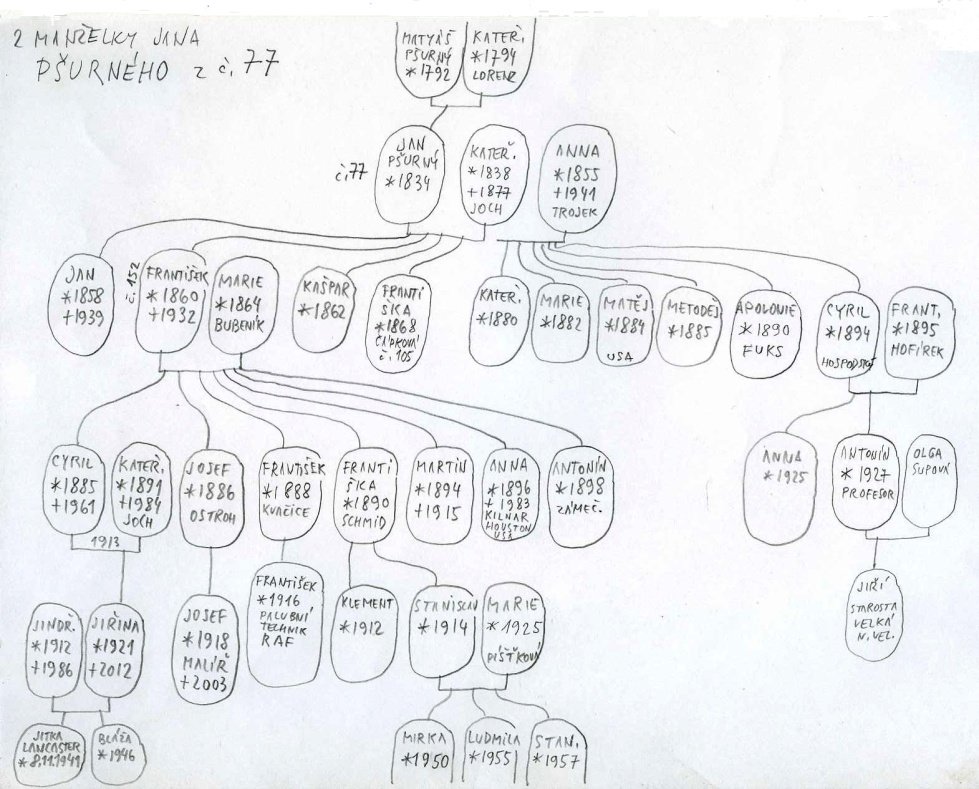 2 MANŽELKY JANA
PŠURNÉHO z č. 77
MATYÁŠ
PŠURNÝ
*1792
KATEŘ.
*1794
LORENZ
č. 77
JAN
PŠURNÝ
*1834
KATEŘ.
*1838
+1877
JOCH
ANNA
*1855
+1941
TROJEK
JAN
*1858
+1939
č. 152
FRANTIŠEK
*1860
+1932
MARIE
*1864
BUBENÍK
KAŠPAR
*1862
FRANTI
ŠKA
*1868
ČÁPKOVÁ
č. 105
KATEŘ.
*1880
MARIE
*1882
MATĚJ
*1884
USA
METODĚJ
*1885
APOLONIE
*1890
FUKS
CYRIL
*1894
HOSPODSKÝ
FRANT.
*1895
HOFÍREK
CYRIL
*1885
+1961
KATEŘ.
*1891
+1984
JOCH
1913
JOSEF
*1886
OSTROH
FRANTIŠEK
*1888
KVAČICE
FRANTI
ŠKA
*1890
SCHMID
MARTIN
*1894
+1915
ANNA
*1896
+1983
KILNAR
HOUSTON
USA
ANTONÍN
*1898
ZÁMEČ.
ANNA
*1925
ANTONÍN
*1927
PROFESOR
OLGA
ŠUPOVÁ
JINDŘ.
*1912
+1986
JIŘINA
*1921
+2012
JOSEF
*1918
MALÍŘ
+2003
FRANTIŠEK
*1916
PALUBNÍ
TECHNIK
RAF
KLEMENT
*1912
STANISLAV
*1914
MARIE
*1925
PÍŠŤKOVÁ
JIŘÍ
STAROSTA
VELKÁ
N. VEL.
JITKA
LANCASTER
*8.11.1941
BLÁŽA
*1946
MIRKA
*1950
LUDMILA
*1955
STAN.
*1957